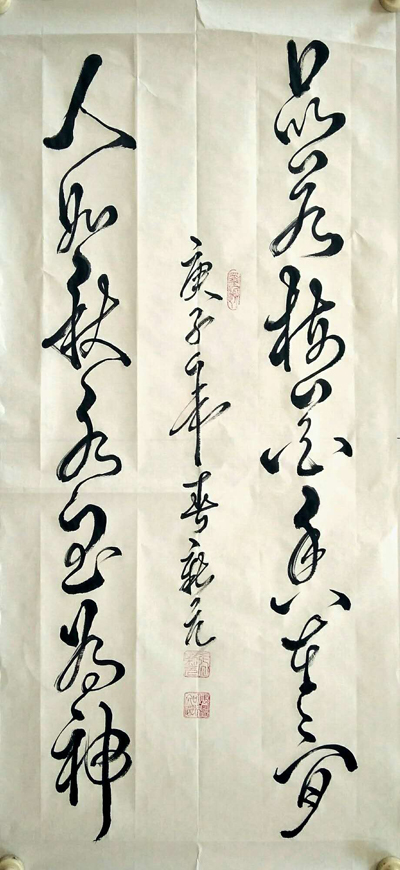 品若梅花香在骨
人如秋水玉为神
庚子年春